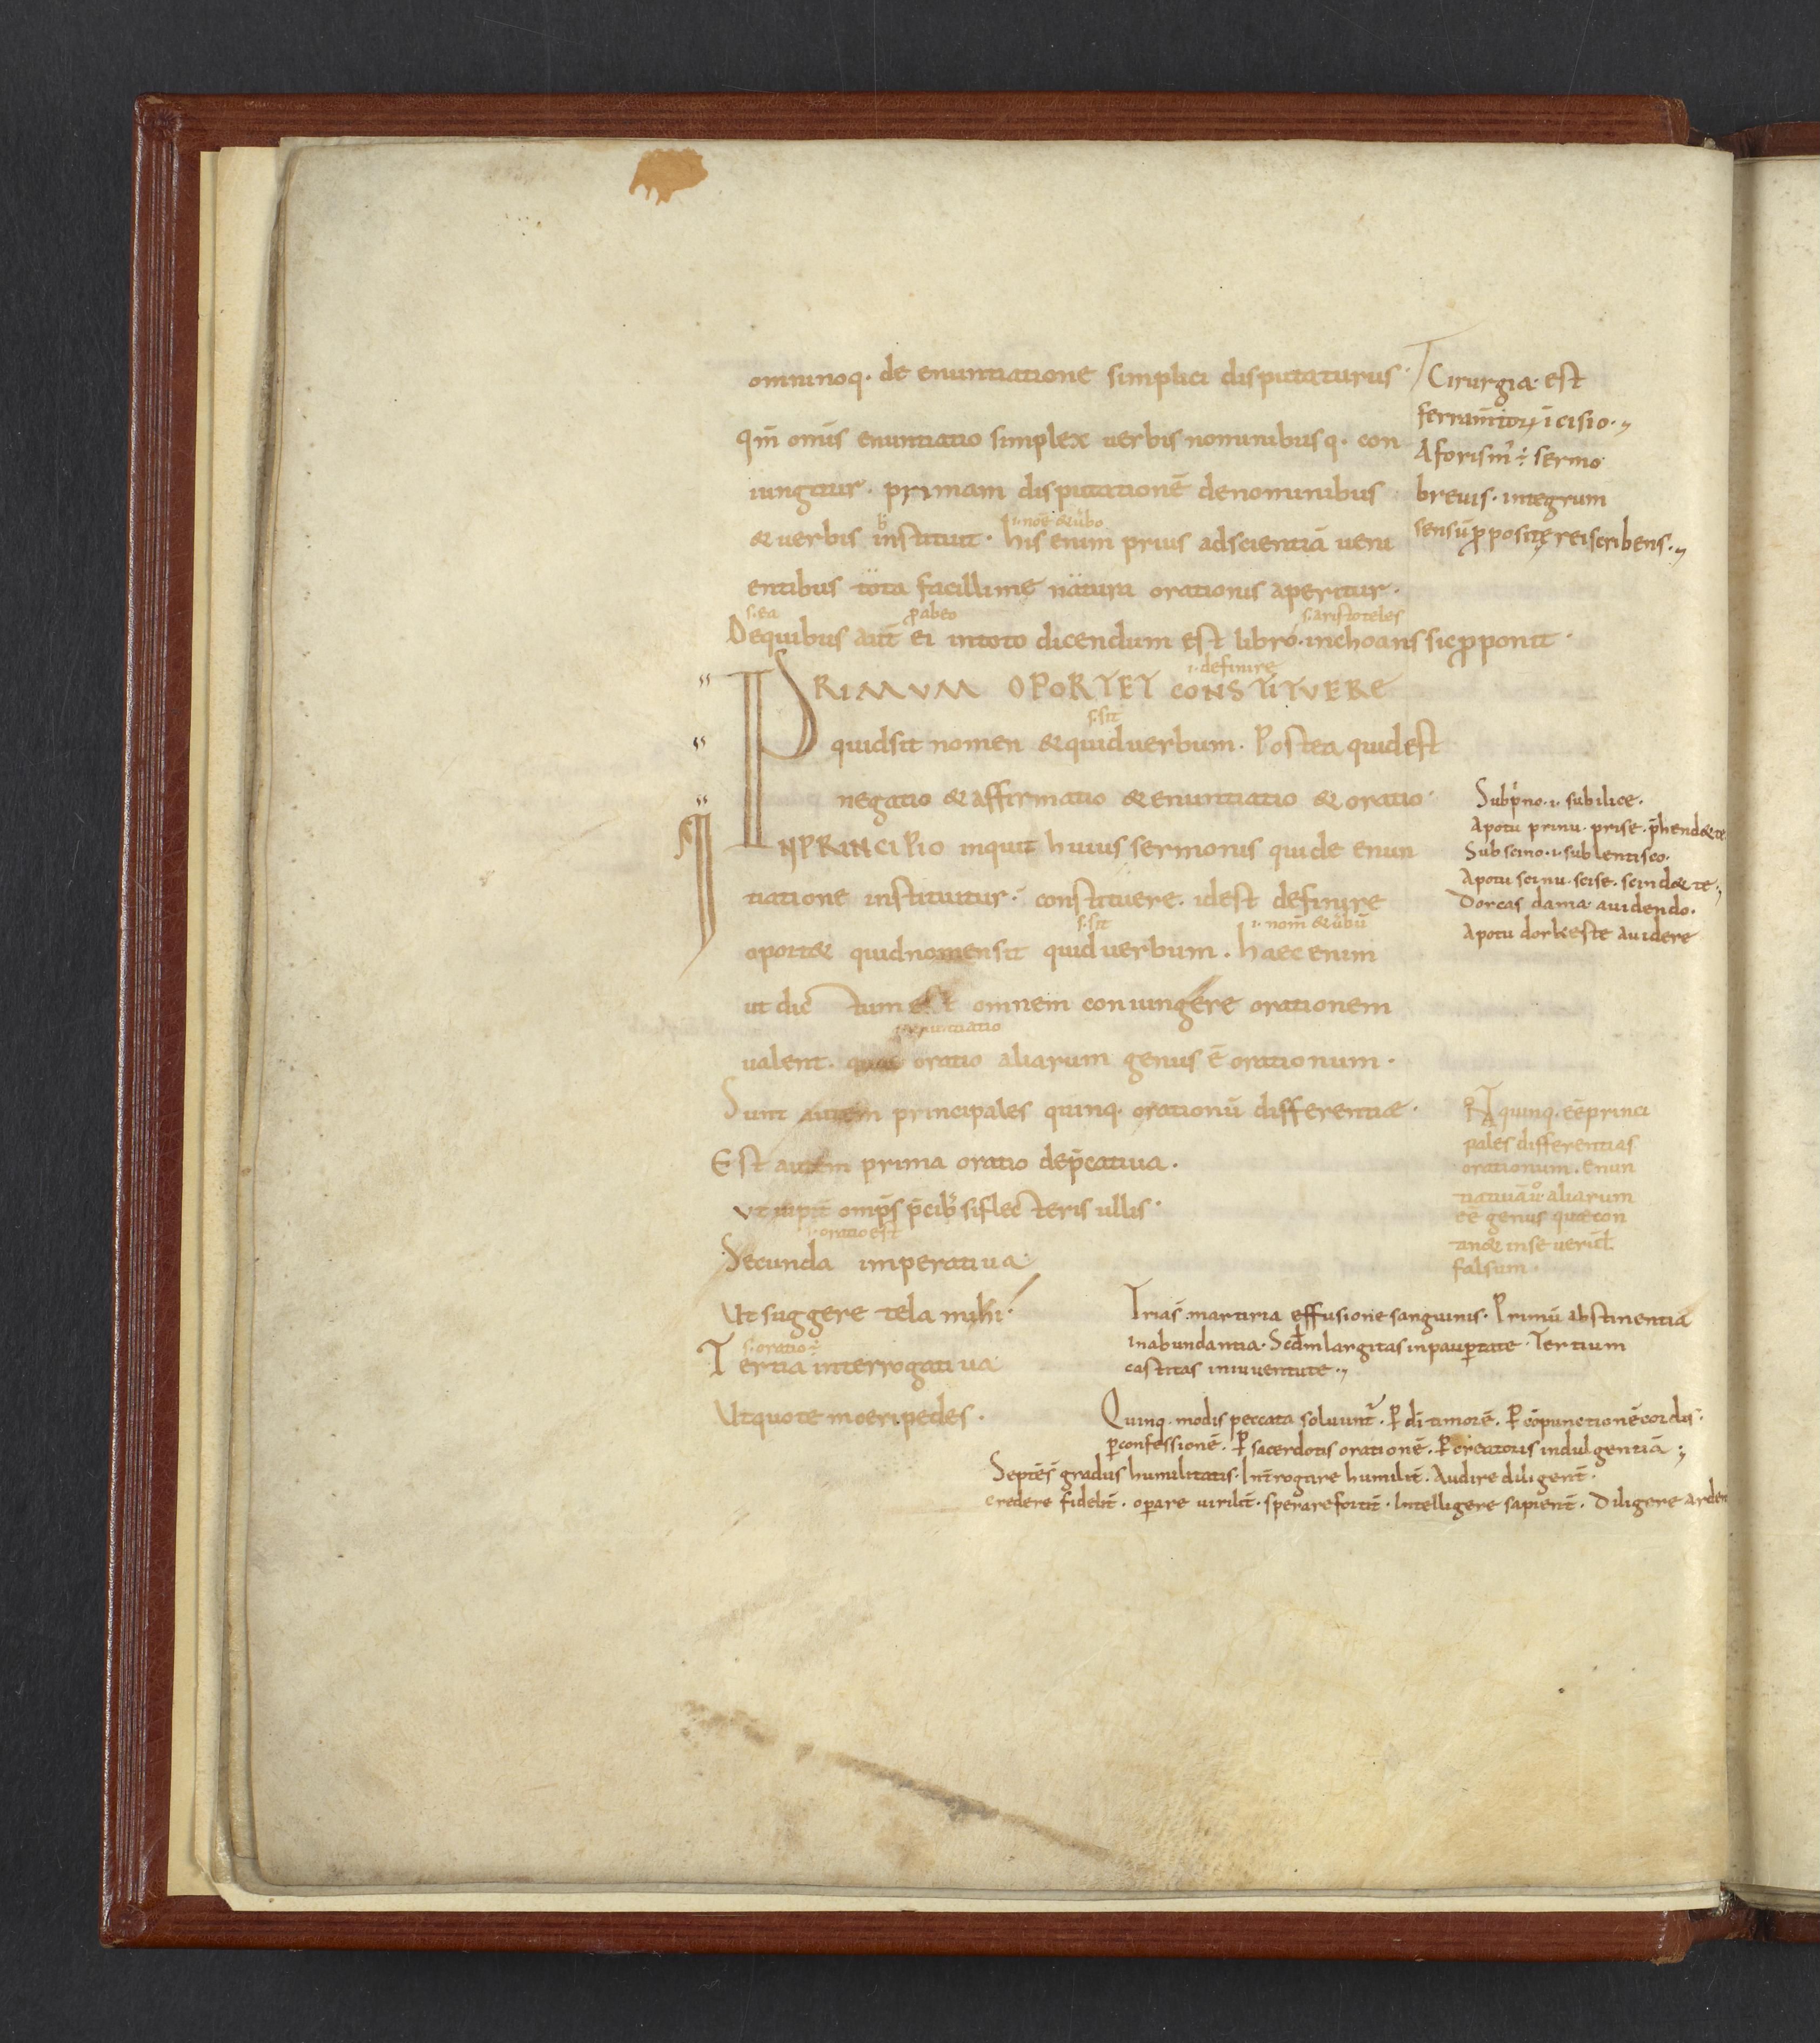 omninoq· de enuntiatione simplici disputaturus·
qm̄ omīs enuntiatio simplex uerbis nominibusq· con
iungitur· primam disputationē denominibus
i· noē &ūbo
&uerbis instituit· his enim prius adscientiā ueni
entibus tota facillime natura orationis aperitur·
s· ea ꝓabeo s· aristoteles
Dequibus aut̄ ei intoto dicendum est libro· inchoans sicꝓponit·
i· definire
PRIMVM OPORTET CONSTITVERE
s· sit
quidsit nomen &quiduerbum· Postea quidest
negatio &affirmatio &enuntiatio &oratio·
INPRINCIPIO inquit huius sermonis quide enun
tiatione instituitur· constituere· idest definire
s· sit i· nom̄ &ūbū
oport& quidnomensit quiduerbum· haec enim
ut dic tum est omnem coniungere orationem
enuntiatio
ualent· quae oratio aliarum genus ē orationum·
Sunt autem principales quinq· orationū differentiae·
Est autem prima oratio dep̄catiua·
Vt iupit̄ omp̄s p̄cib; siflec teris ullis·
oratio est
Secunda imperatiua·
Vt suggere tela mihi·
s· oratio ÷
Tertia interrogatiua
Vtquote moeripedes·
Cirurgia· est
ferram̄toꝝ īcisio·
Aforism̄ ÷ sermo
breuis· integrum
sensū ꝓpositę reiscribens·
Subp̄no· i· subilice·
Apotu prinu· prise· p̄hend&te
Subscino· i· sublentisco·
Apotu scinu· scise· scind&te·
Dorcas dama· auidendo·
Apotu dorkeste auidere
quinq· eē princi
pales differentias
orationum· Enun
tiatiuā ū aliarum
eē genus quaecon
tin& inse uerū ł
falsum·
Trias martiria effusione sanguinis· Primū abstinentia
inabundantia· Scdm largitas inpauꝑtate· Tertium
castitas iniuuentute·
Quinq· modis peccata soluunt̄· ꝑ dī timorē· ꝑ cōpunctionē cordis·
ꝑconfessionē· ꝑ sacerdotis orationē· ꝑ creatoris indulgentiā;
Septē s̄ gradus humilitatis· Int̄rogare humilit̄· Audire diligent̄·
credere fidelit̄· oꝑare uirilit̄· sperare fortit̄· Intelligere sapient̄· Diligere arden